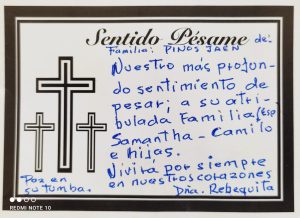 Sentido Pésame de:
Familia: PINOS JAEN
Nuestro más profun-
do sentimiento de
pesar; a su atri-
bulada Familia, Esp
Samantha - Camilo
e hijas.
Vivirá por siempre
en nuestros corazones
Paz en
su tumba.
Dña. Rebequita
REDMI NOTE 10